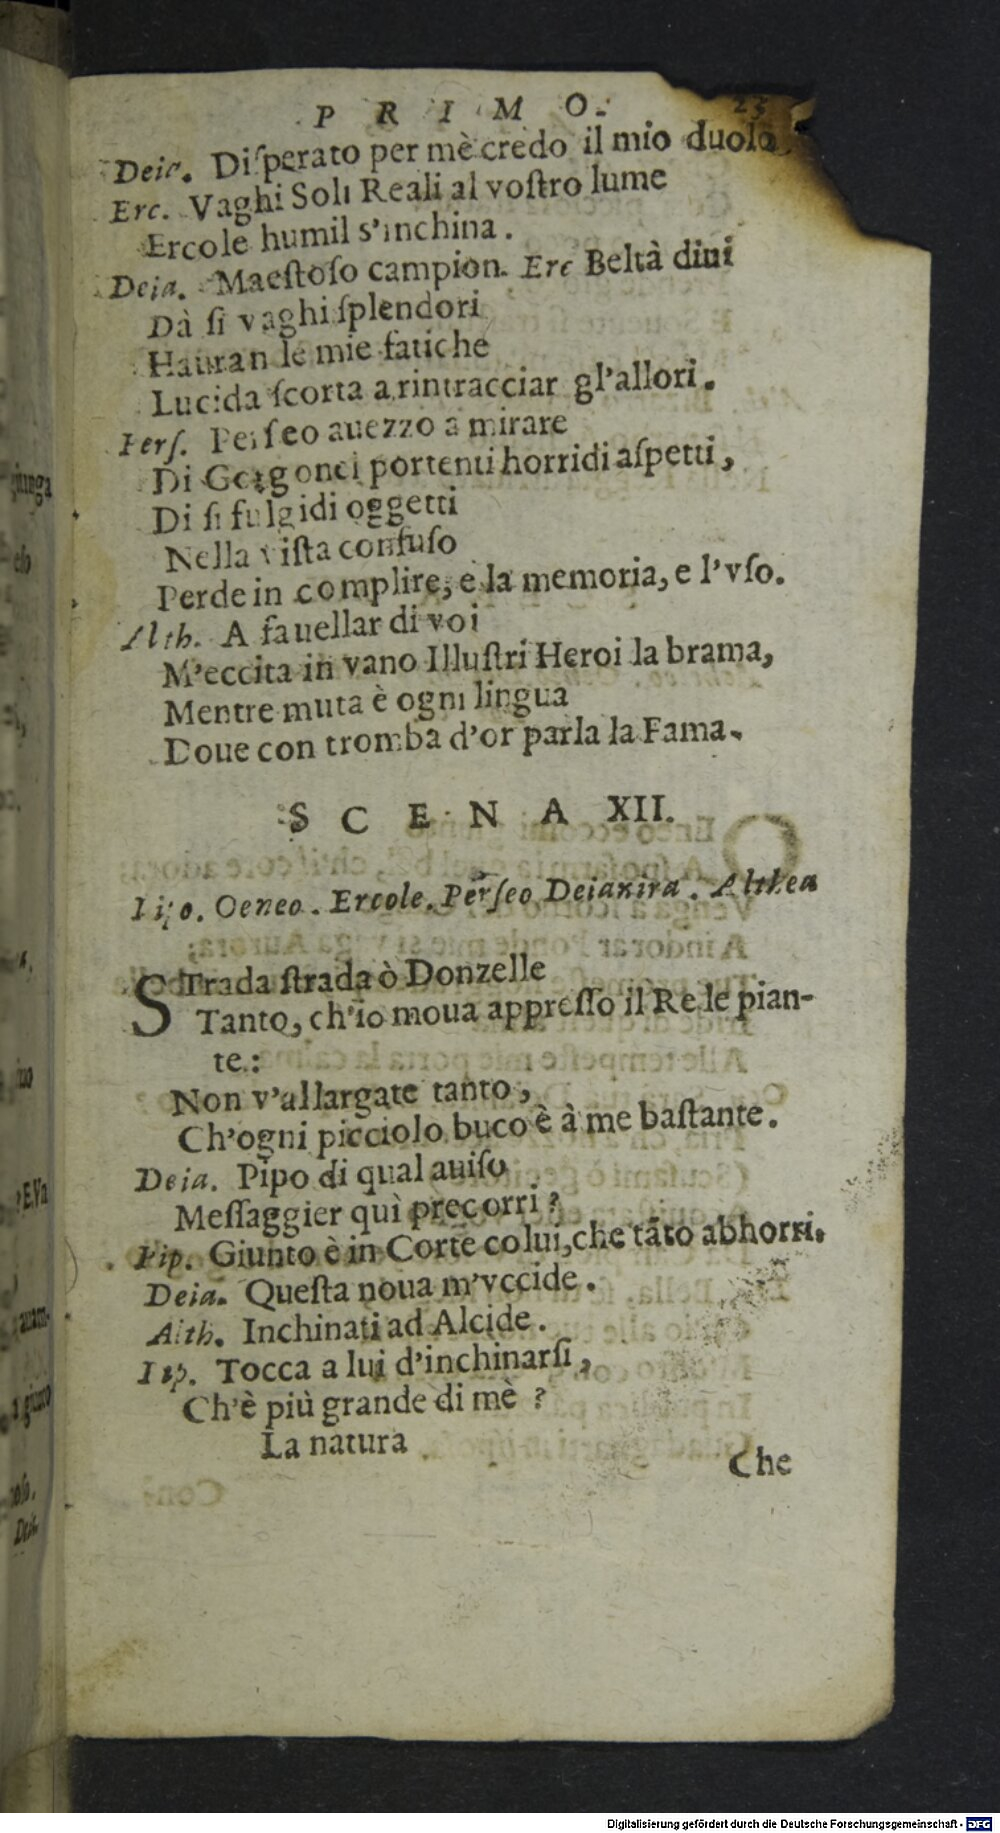 PRIMO. 23
Deia. Diſperato per mè credo il mio duolo
Erc. Vaghi Soli Reali al voſtro lume
Ercole humil s'inchina.
Deia. Maeſtoſo campion. Erc Beltà diui
Dà ſi vaghi ſplendori
Hauran le mie fatiche
Lucida ſcorta a rintracciar gl'allori.
Perſ. Perſeo auezzo a mirare
Di Gorgonei portenti horridi aſpetti,
Di ſi fulgidi oggetti
Nella viſta confuſo
Perde in complire, e la memoria, e l'vſo.
Alth. A fauellar di voi
M'eccita in vano Illuſtri Heroi la brama,
Mentre muta è ogni lingua
Doue con tromba d'or parla la Fama.
SCENA XII.
Pipo. Oeneo. Ercole. Perſeo Deianira. Althea
STrada ſtrada ò Donzelle
Tanto, ch'io moua appreſſo il Re le pian-
te.:
Non v'allargate tanto,
Ch'ogni picciolo buco è à me baſtante.
Deia. Pipo di qual auiſo
Meſſaggier quì precorri?
Pip. Giunto è in Corte colui, che tãto abhorri.
Deia. Queſta noua m'vccide.
Alth. Inchinati ad Alcide.
Pip. Tocca a lui d'inchinarſi,
Ch'è più grande di mè?
La natura
Che
giunga
E.Va
giunto
Digitalisierung gefördert durch die Deutsche Forschungsgemeinschaft - DFG